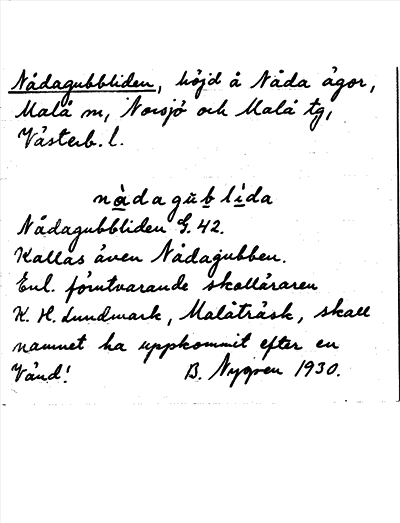 Nådagubbliden, höjd å Nåda ägor,
Malå sn, Norsjö och Malå tg,
Västerb. l.
nàdagŭblìda
Nådagubbliden G. 42.
Kallas även Nådagubben.
Enl. förutvarande skolläraren
K. H. Lundmark, Malåträsk, skall
namnet ha uppkommit efter en
Vänd!
B. Nygren 1930.